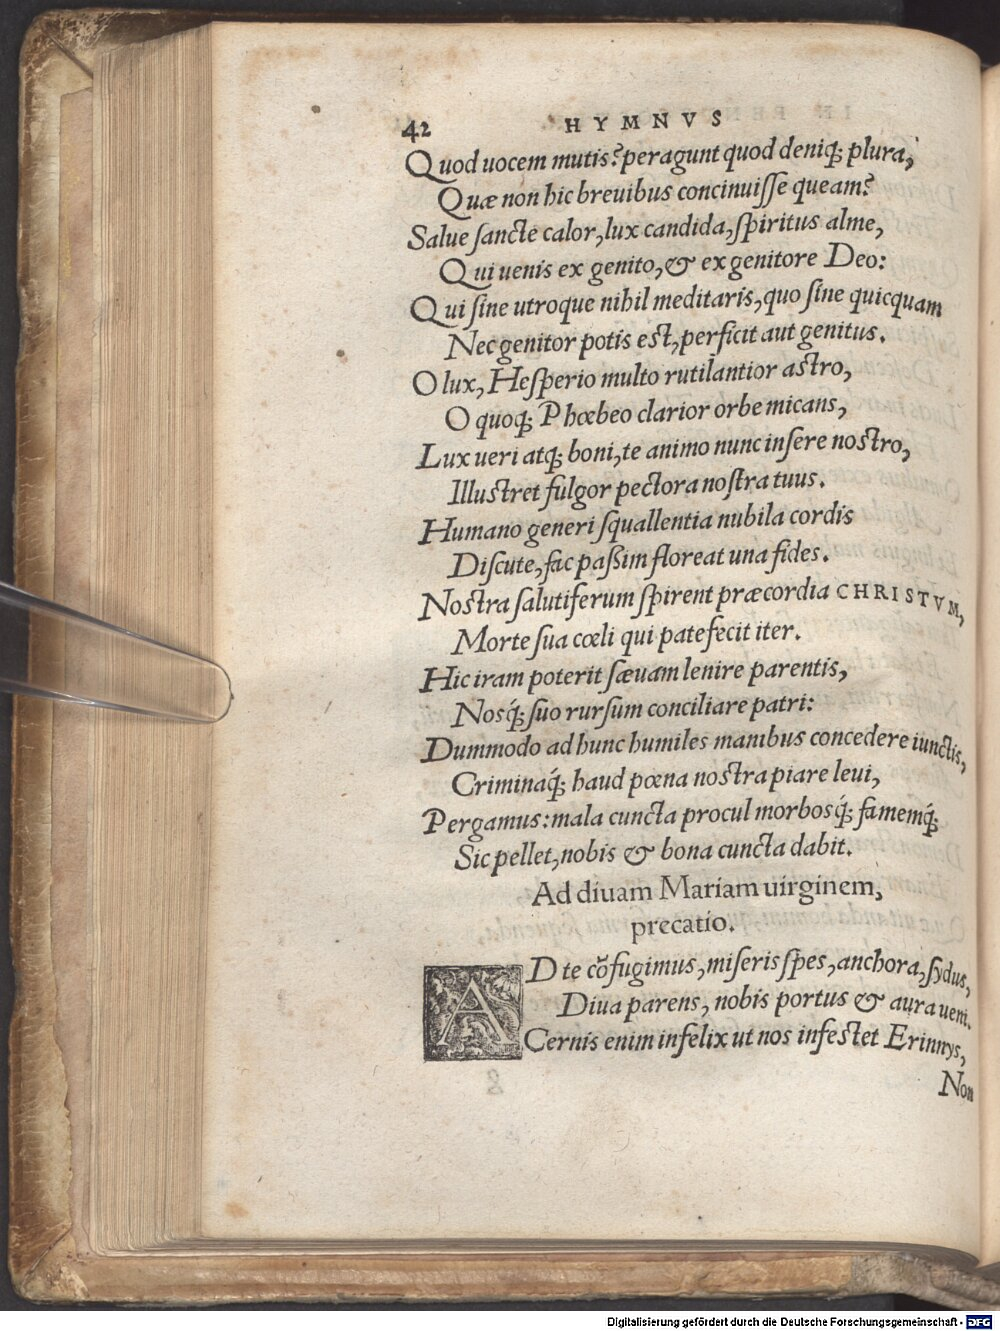 42 HYMNVS
Quod uocem mutis? peragunt quod deniq; plura,
Quæ non hic breuibus concinuiſſe queam?
Salue ſancte calor, lux candida, ſpiritus alme,
Qui uenis ex genito, & ex genitore Deo:
Qui ſine utroque nihil meditaris, quo ſine quicquam
Nec genitor potis est, perficit aut genitus.
O lux, Heſperio multo rutilantior astro,
O quoq; Phœbeo clarior orbe micans,
Lux ueri atq; boni, te animo nunc inſere nostro,
Illustret fulgor pectora noſtra tuus.
Humano generi ſquallentia nubila cordis
Diſcute, fac paßim floreat una fides.
Nostra ſalutiferum ſpirent præcordia CHRISTVM,
Morte ſua cœli qui patefecit iter.
Hic iram poterit ſæuam lenire parentis,
Nosq́; ſuo rurſum conciliare patri:
Dummodo ad hunc humiles manibus concedere iunctis,
Criminaq́; haud pœna nostra piare leui,
Pergamus: mala cuncta procul morbosq́; famemq́;
Sic pellet, nobis & bona cuncta dabit.
Ad diuam Mariam uirginem,
precatio.
AD te cõfugimus, miseris ſpes, anchora, ſydus,
Diua parens, nobis portus & aura ueni.
Cernis enim infelix ut nos infestet Erinnys,
Non
Digitalisierung gefördert durch die Deutsche Forschungsgemeinschaft - DFG